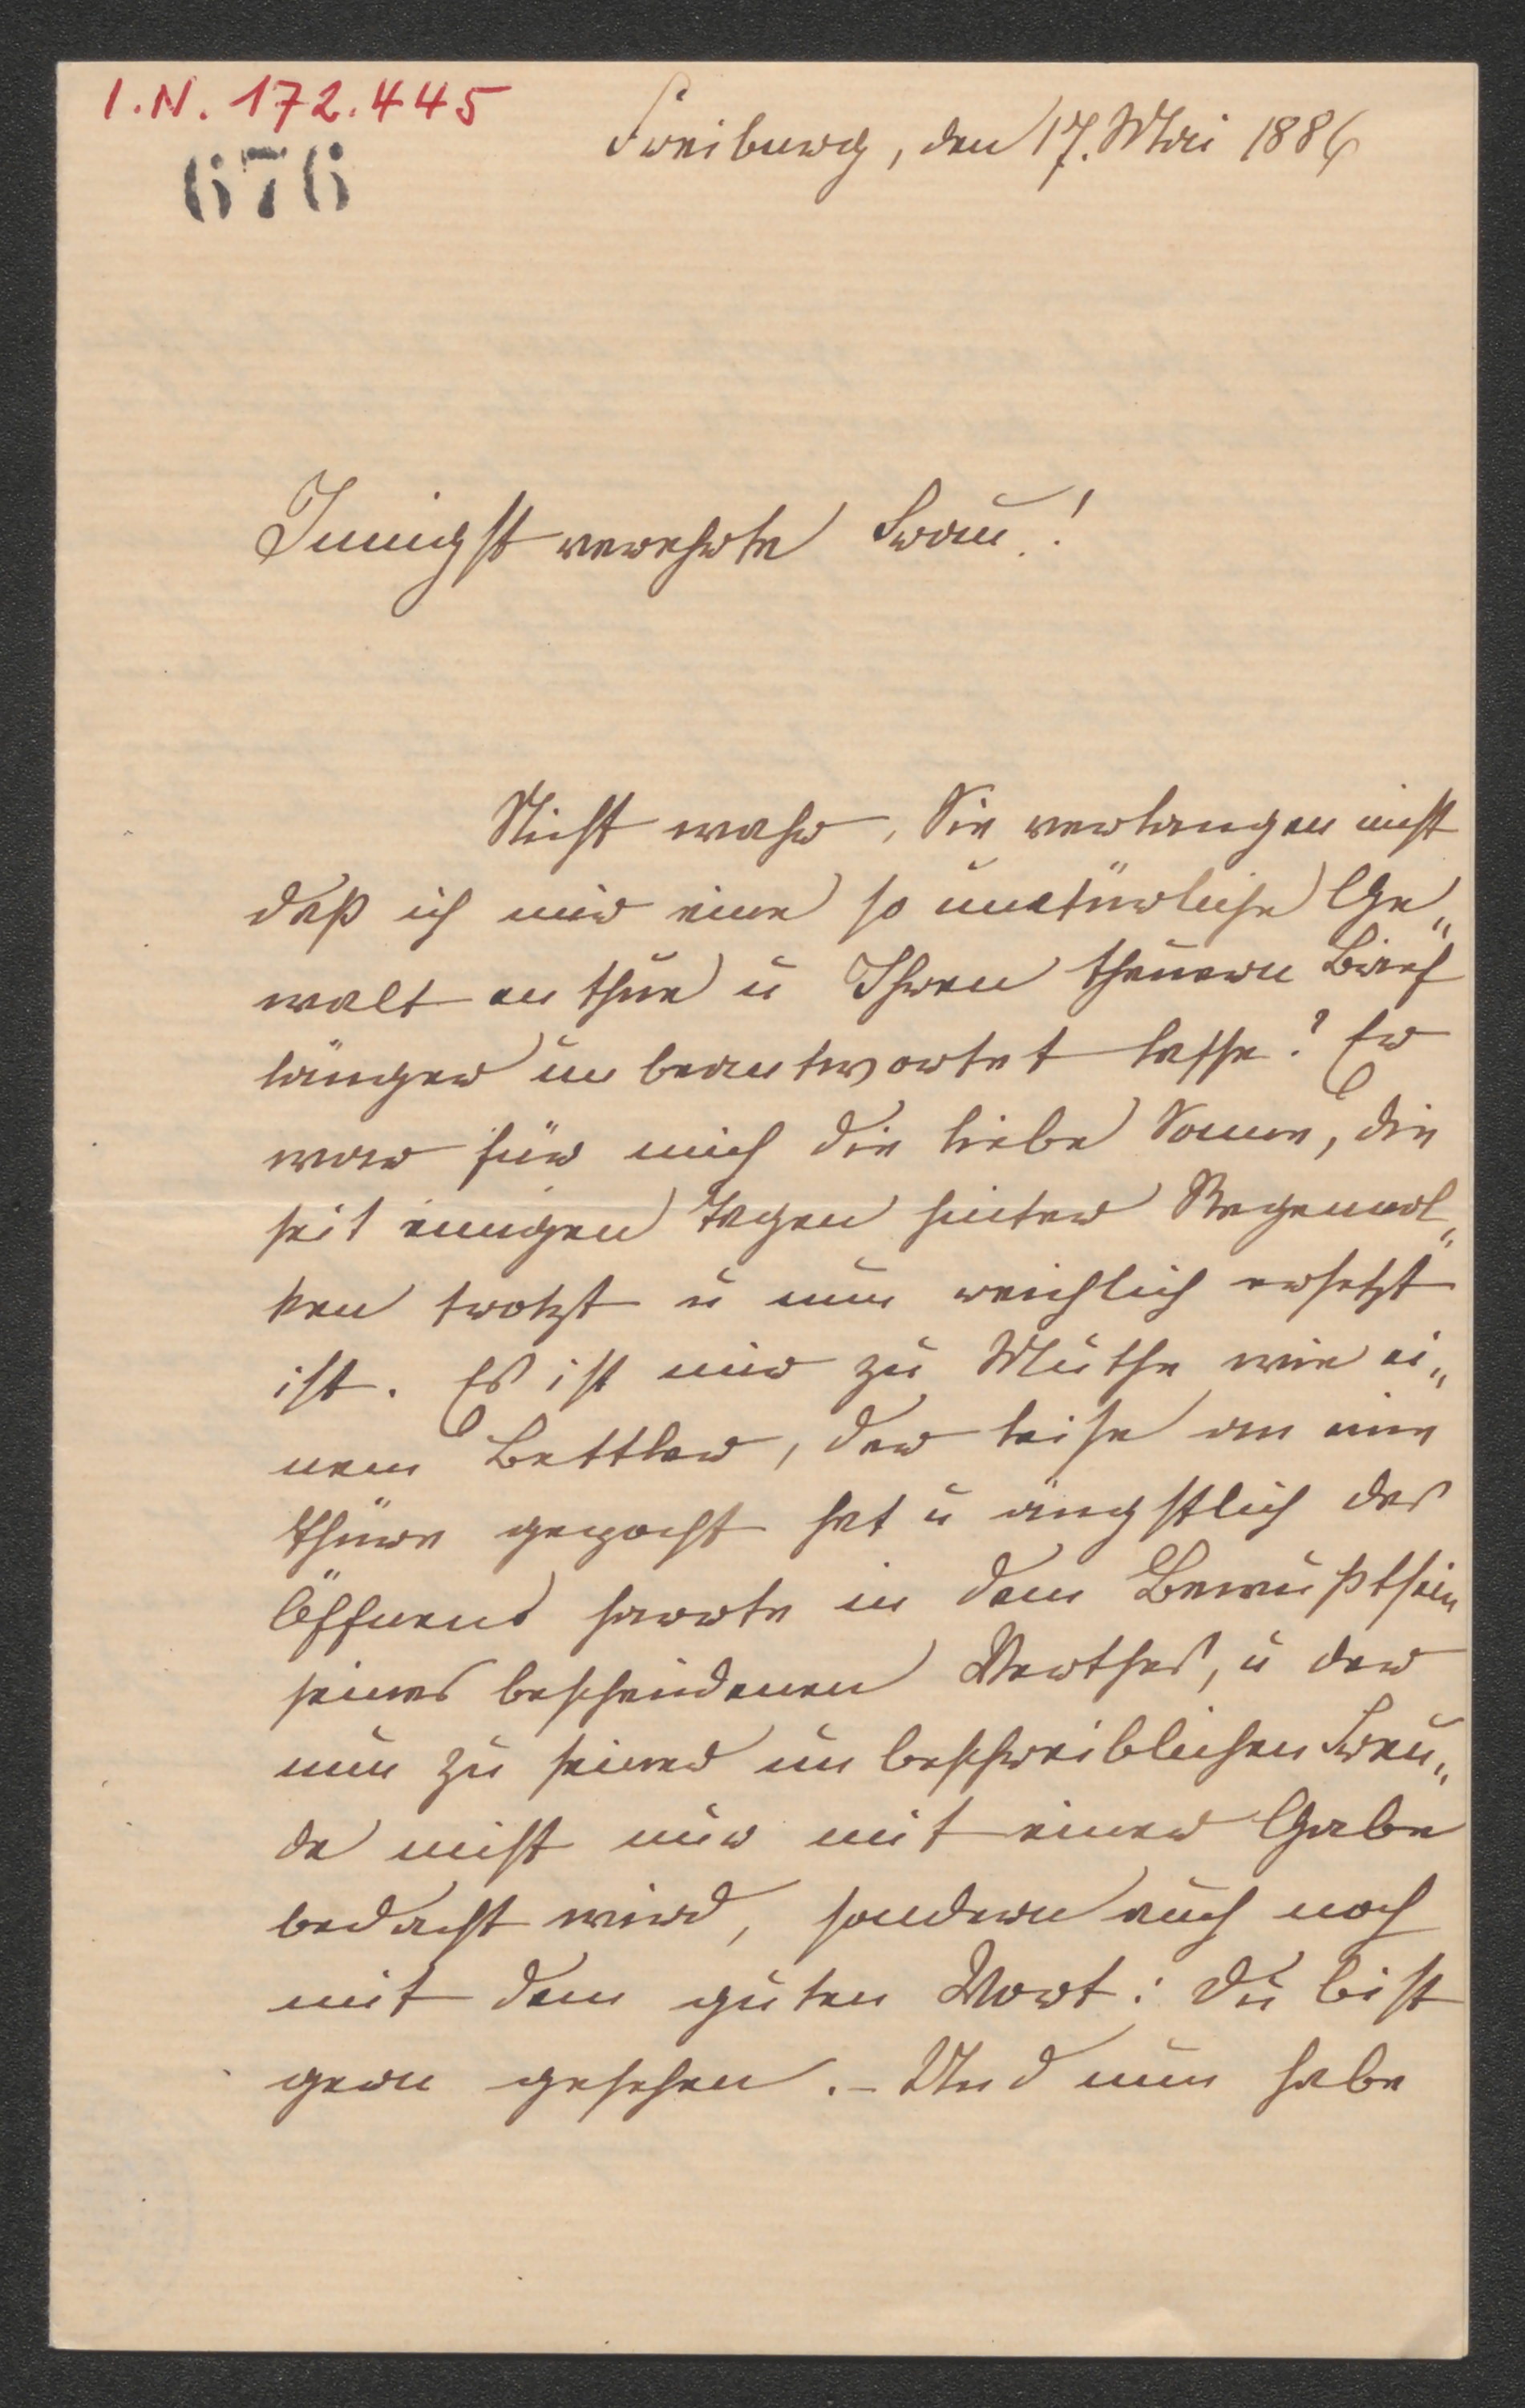 I.N. 172.445
676
Freiburg, den 17. Mai 1886
Innigst verehrte Frau!
Nicht wahr, Sie verlangen nicht
daß ich mir eine so unatürliche Ge„
walt an thue u Ihren theuern Brief
länger unbeantwortet lasse? Er
war für mich die liebe Sonne, die
seit einigen Tagen hinter Regenwol„
ken trotzt u nun reichlich ersetzt
ist. Es ist mir zu Muthe wie ei„
nem Bettler, der leise an eine
Thüre gepocht hat u ängstlich des
Öffnens harrte in dem Bewußtsein
seines bescheidenen Werthes, u der
nun zu seiner unbeschreiblichen Freu„
de nicht nur mit einer Gabe
bedacht wird, sondern auch noch
mit dem guten Wort: Du bist
gern gesehen. – Und nun habe